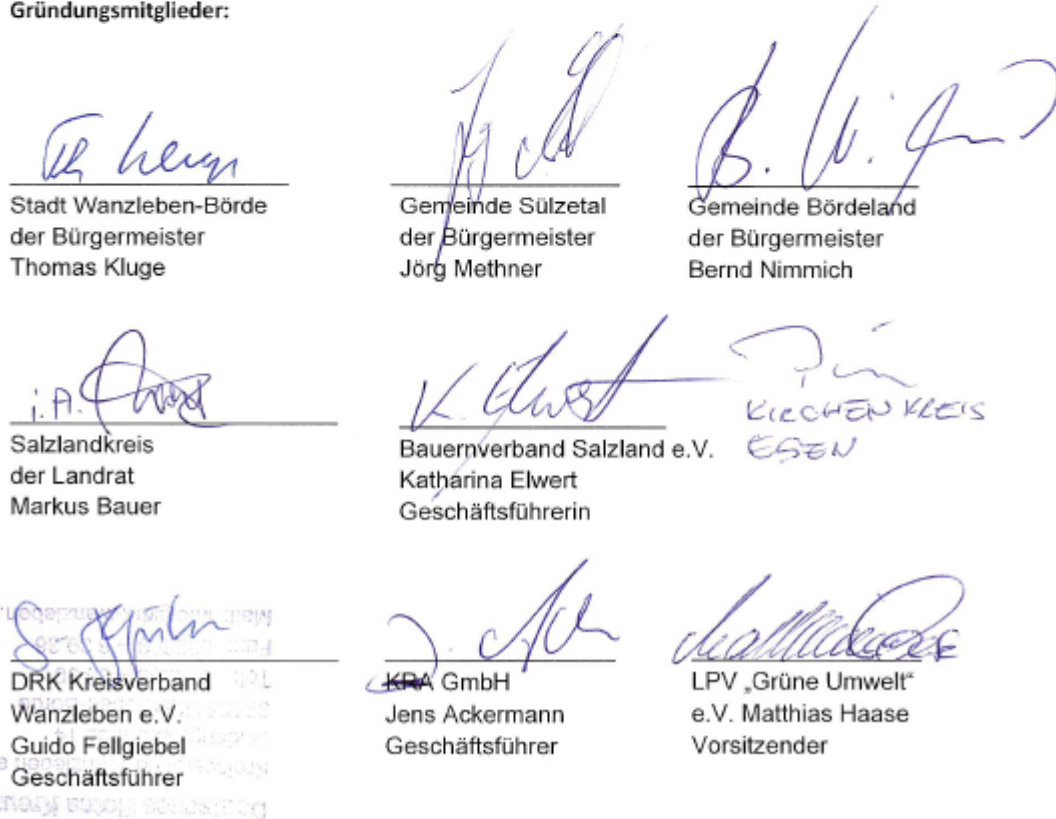 Gründungsmitglieder:
Stadt Wanzleben-Börde
der Bürgermeister
Thomas Kluge
Gemeinde Sülzetal
der Bürgermeister
Jörg Methner
Gemeinde Bördeland
der Bürgermeister
Bernd Nimmich
i.A.
Salzlandkreis
der Landrat
Markus Bauer
K. Elwert
Bauernverband Salzland e.V.
Katharina Elwert
Geschäftsführerin
KIRCHENKREIS
EGELN
DRK Kreisverband
Wanzleben e.V.
Guido Fellgiebel
Geschäftsführer
KRA GmbH
Jens Ackermann
Geschäftsführer
LPV „Grüne Umwelt“
e.V. Matthias Haase
Vorsitzender